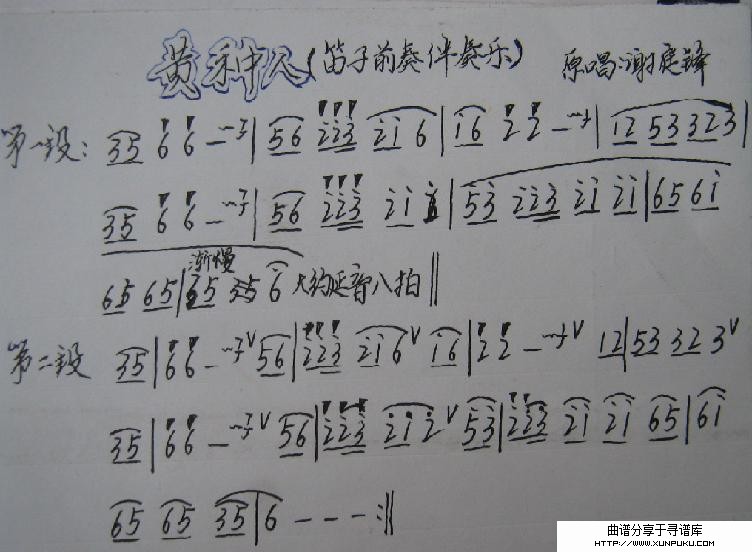 黄种人(笛子前奏伴奏乐) 原唱:谢庭锋
第一段: 35 66 — | 56 223 216 | 16 22 — | 12 53 323 |
35 66 — | 56 223 21 | 53 223 21 21 | 65 61
65 65 | 渐慢 35 35 6 大约延音八拍 ‖
第二段 35 | 66 — V 56 | 223 216 V 16 | 22 — V 12 | 53 323 V
35 | 66 — V 56 | 223 212 V 53 | 223 21 21 65 | 61
65 65 35 | 6 - - - :‖
曲谱分享于寻谱库
HTTP://WWW.XUNPUKU.COM